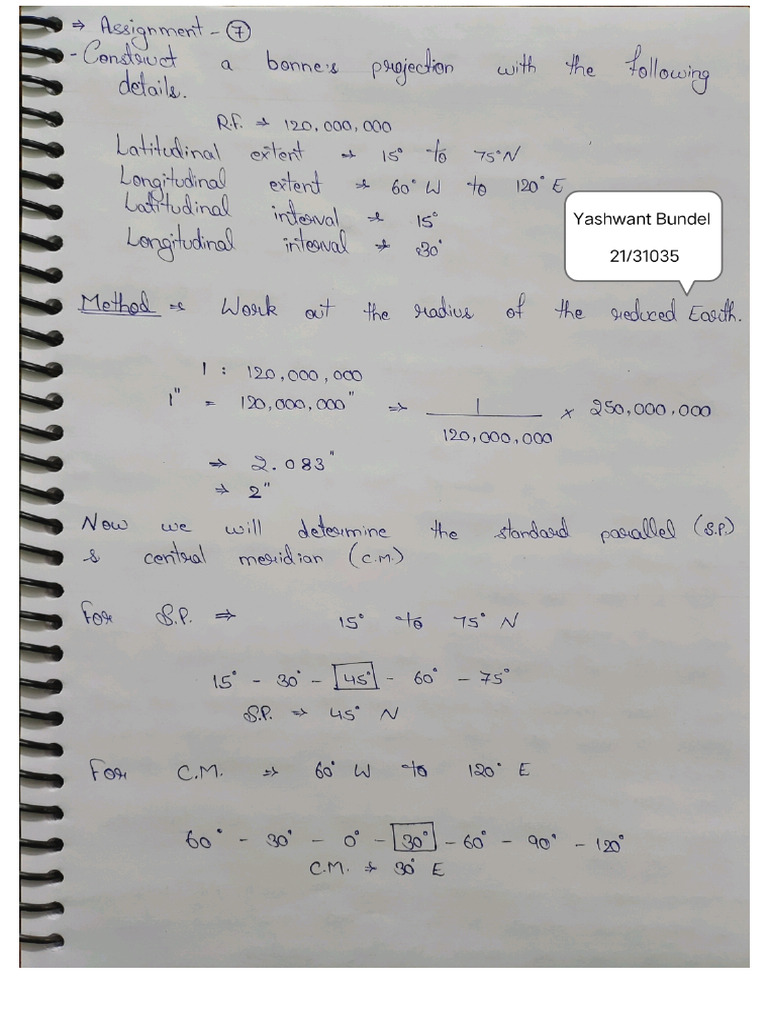 ⇒ Assignment - ⑦
- Construct a bonne's projection with the following
details.
R.F. → 120,000,000
Latitudinal extent → 15° to 75°N
Longitudinal extent → 60° W to 120° E
Latitudinal interval → 15°
Longitudinal interval → 30°
Yashwant Bundel
21/31035
Method ⇒ Work out the radius of the reduced Earth.
1 : 120,000,000
1" = 120,000,000" ⇒ 1 / 120,000,000 × 250,000,000
⇒ 2.083"
⇒ 2"
Now we will determine the standard parallel (S.P.)
& central meridian (C.M.)
For S.P. ⇒ 15° to 75° N
15° - 30° - 45° - 60° - 75°
S.P. ⇒ 45° N
For C.M. ⇒ 60° W to 120° E
60° - 30° - 0° - 30° - 60° - 90° - 120°
C.M. → 30° E